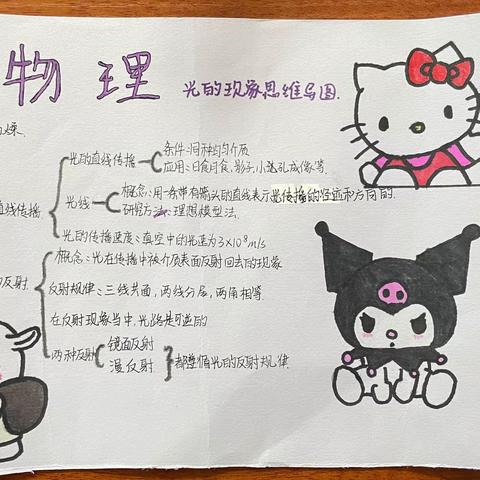 物理
光的现象思维导图.
光的直线传播
条件:同种均匀介质
应用:日食月食、影子、小孔成像等.
直线传播
光线
概念:用一条带有箭头的直线表示光传播的径迹和方向的.
研究方法:理想模型法.
光的传播速度:真空中的光速为3×10⁸m/s
概念:光在传播中被介质表面反射回去的现象
的反射
反射规律:三线共面,两线分居,两角相等.
在反射现象当中,光路是可逆的
两种反射
镜面反射
漫反射
都遵循光的反射规律.